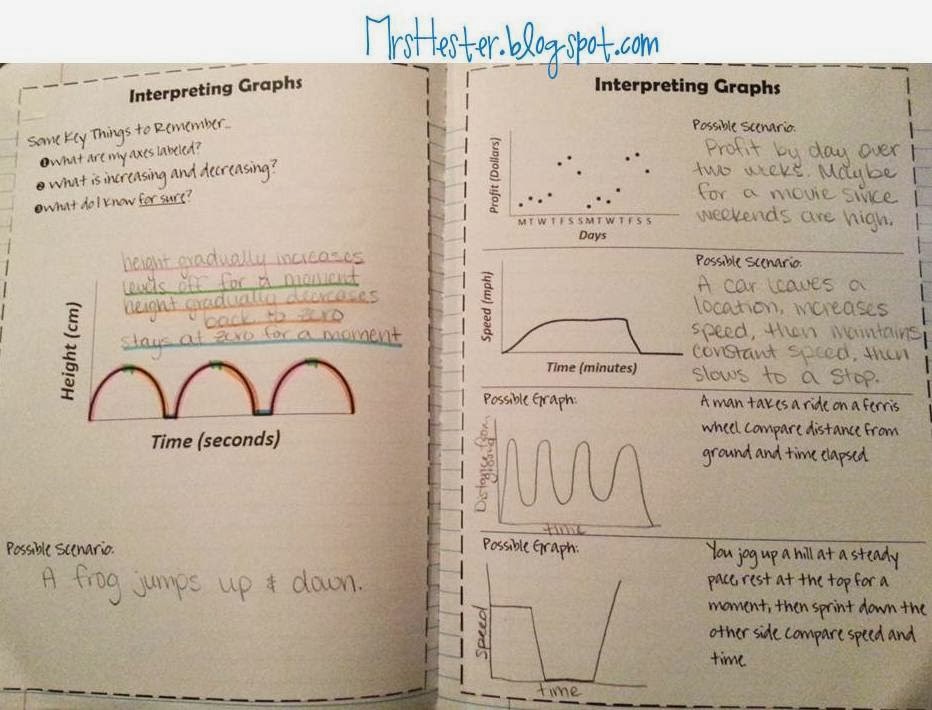 MrsHester.blogspot.com
Interpreting Graphs
Some Key Things to Remember...
① What are my axes labeled?
② What is increasing and decreasing?
③ What do I know for sure?
height gradually increases
levels off for a moment
height gradually decreases
back to zero
stays at zero for a moment
Height (cm)
Time (seconds)
Possible Scenario:
A frog jumps up & down.
Interpreting Graphs
Profit (Dollars)
M T W T F S S M T W T F S S
Days
Possible Scenario:
Profit by day over
two weeks. Maybe
for a movie since
weekends are high.
Speed (mph)
Time (minutes)
Possible Scenario:
A car leaves a
location, increases
speed, then maintains
constant speed, then
slows to a stop.
Possible Graph:
Distance from
ground
time
A man takes a ride on a ferris
wheel compare distance from
ground and time elapsed
Possible Graph:
Speed
time
You jog up a hill at a steady
pace, rest at the top for a
moment, then sprint down the
other side compare speed and
time